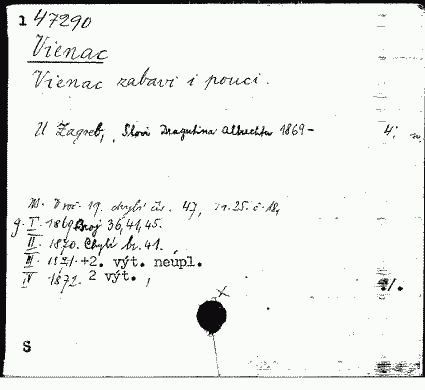 1 47290
Vienac
Vienac zabavi i pouci.
U Zagreb, Slovi Dragutina Albrechta 1869- 4;
V roč. 19. chybí čís. 47, r. 25. č. 18,
g. I. 1869 Broj 36,41,45.
II. 1870. Chybí br. 41.
III. 1871. +2. výt. neúpl.
IV 1872. 2 výt.
S